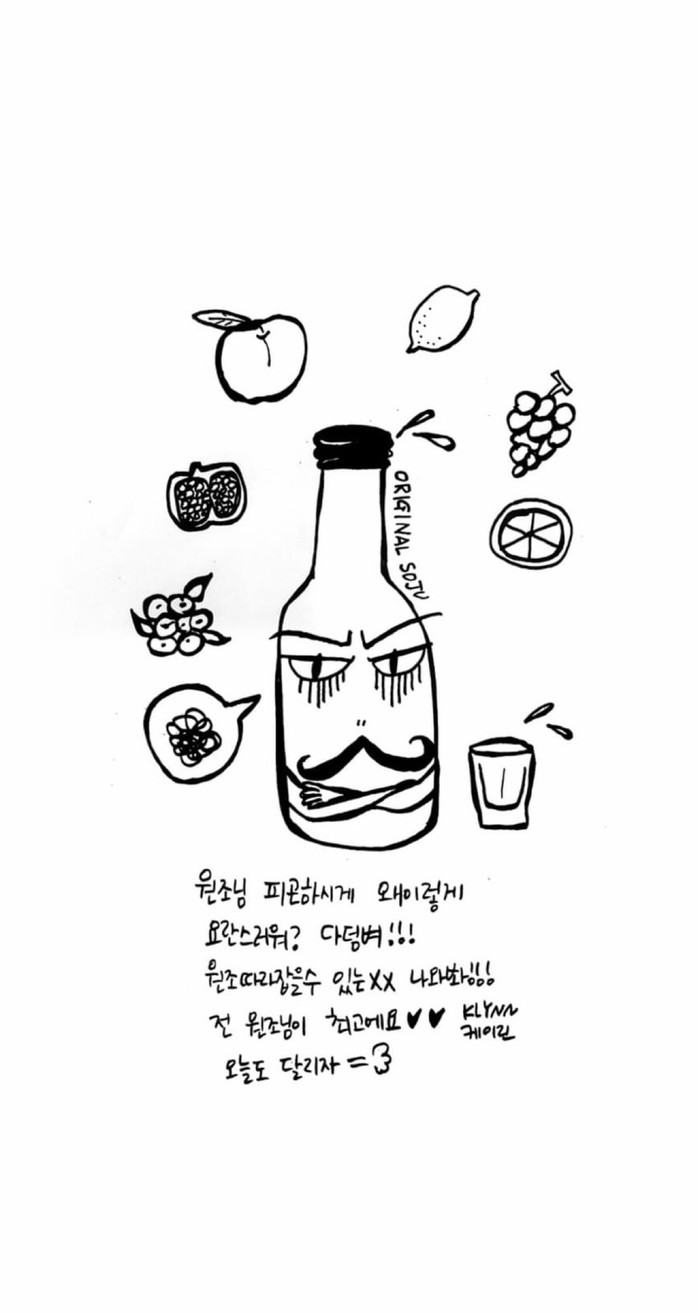 ORIGINAL SOJU
원조님 피곤하시게 왜이렇게
요란스러워? 다덤벼!!!
원조따라잡을수 있는XX 나와봐!!!
전 원조님이 최고에요♥♥
KLYNN
케이린
오늘도 달리자=3